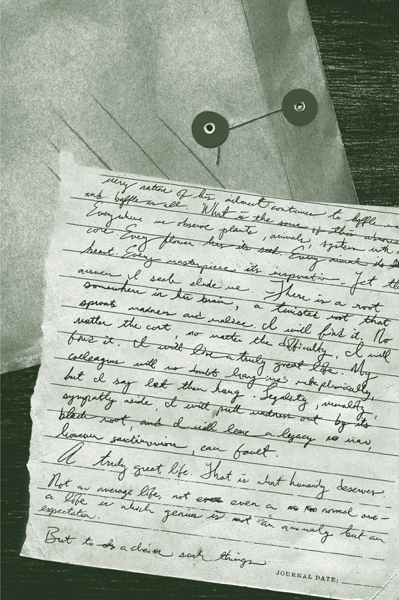 very nature of his ailment continues to baffle
and baffle us all. What is the source of this
Everywhere we observe plants, animals, system with
core. Every flower has its seed. Every animal its
heart. Every masterpiece its inspiration. Yet the
answer I seek elude me. There is a root
somewhere in his brain, a twisted root that
sprouts madness and malice. I will find it. No
matter the cost, no matter the difficulty, I will
find it. I will live a truly great life. My
colleagues will no doubt hang me metaphorically,
but I say let them hang. Legality, morality,
sympathy aside, I will pull madness out by its
black root, and I will leave a legacy no man,
however sanctimonious, can forget.
A truly great life. That is what humanity deserves.
Not an average life, not even even a no normal one -
a life in which genius is not an anomaly but an
expectation.
But to do such things
JOURNAL DATE: